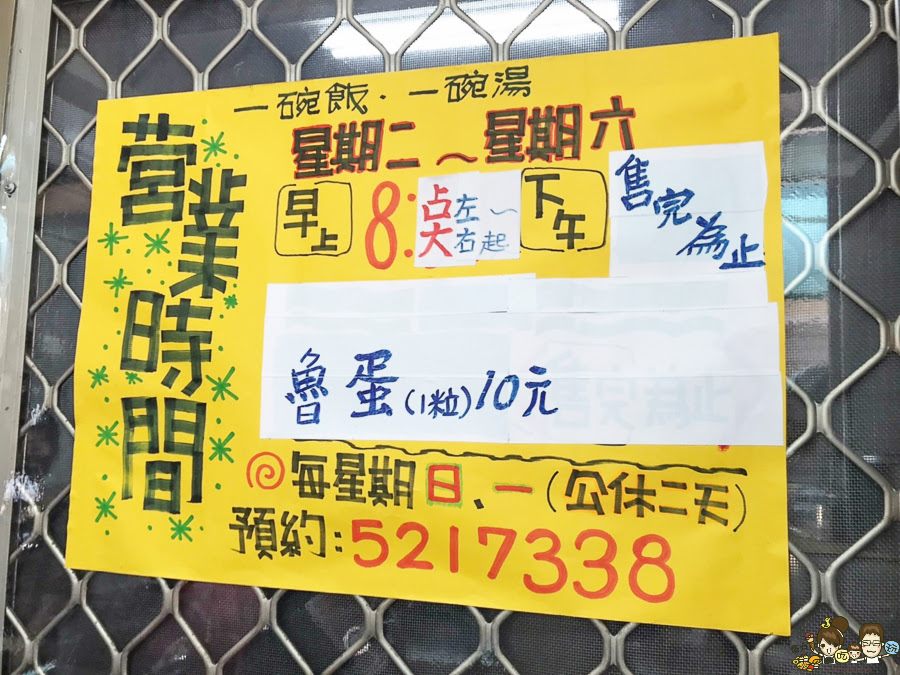 一碗飯．一碗湯
營業時間
星期二～星期六
早上 8:占大左右起～ 下午 售完為止
魯蛋(1粒)10元
每星期日、一(公休二天)
預約:5217338